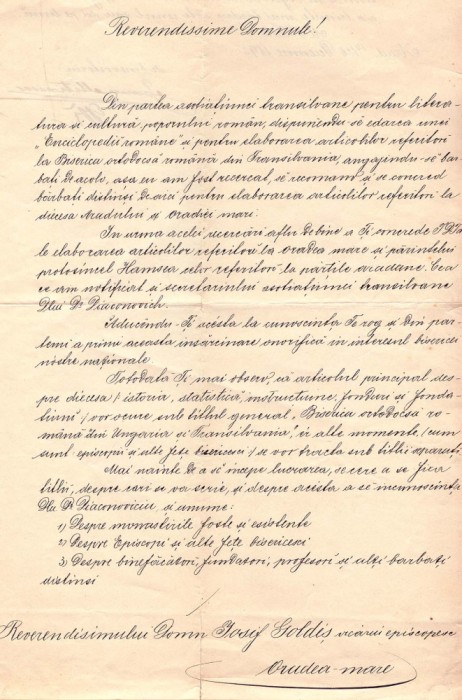 Reverendissime Domnule!
Din partea asotiatiunei transilvane pentru litera-
tura și cultura poporului român, dispunendu-se edarea unei
„Enciclopedii române" și pentru elaborarea articolilor referitori
la Biserica ortodocsă română din Transilvania, angajându-se băr-
bati de acolo, așa eu am fost recercat, să recomand și se concred
bărbati distinși de aici pentru elaborarea articolilor referitori la
diecesa Aradului și oradiei mari.
In urma acelei recercări aflu de bine a Ti concrede
le elaborarea articolilor referitori la oradea mare și părintelui
protosincel Hamsea celor referitori la partile aradane. Ceea
ce am notificat și secretariului asotiatiunei transilvane
Dlui Dr Diaconovich.
Aducându-Ti acesta la cunoscinta Te rog și din par-
temi a primi aceasta insărcinare onorifică in interesul bisericei
nostre nationale.
Totodată Ti mai observ, că articolul principal des-
pre diecesa / istoria, statistica, instructiune, fonduri și fonda-
tiuni / vor ocure sub titlul general „Biserica ortodocsă ro-
mână din Ungaria și Transilvania", ii alte momente / cum
sunt episcopii și alte fete bisericesci / se vor tracta sub titlii aparati
Mai nainte de a sĕ incepe lucrarea, se cere a se fica
titlii, despre cari se va scrie, și despre acesta a se incunoscinta
Dlu Dr Diaconoviciu, și anume:
1) Despre monastirile foste și esistente
2) Despre Episcopi și alte fete bisericesci
3) Despre binefăcători, fundatori, profesori și alti barbati
distinsi
Reverendisimului Domn Iosif Goldiș vicariu episcopesc
Oradea-mare